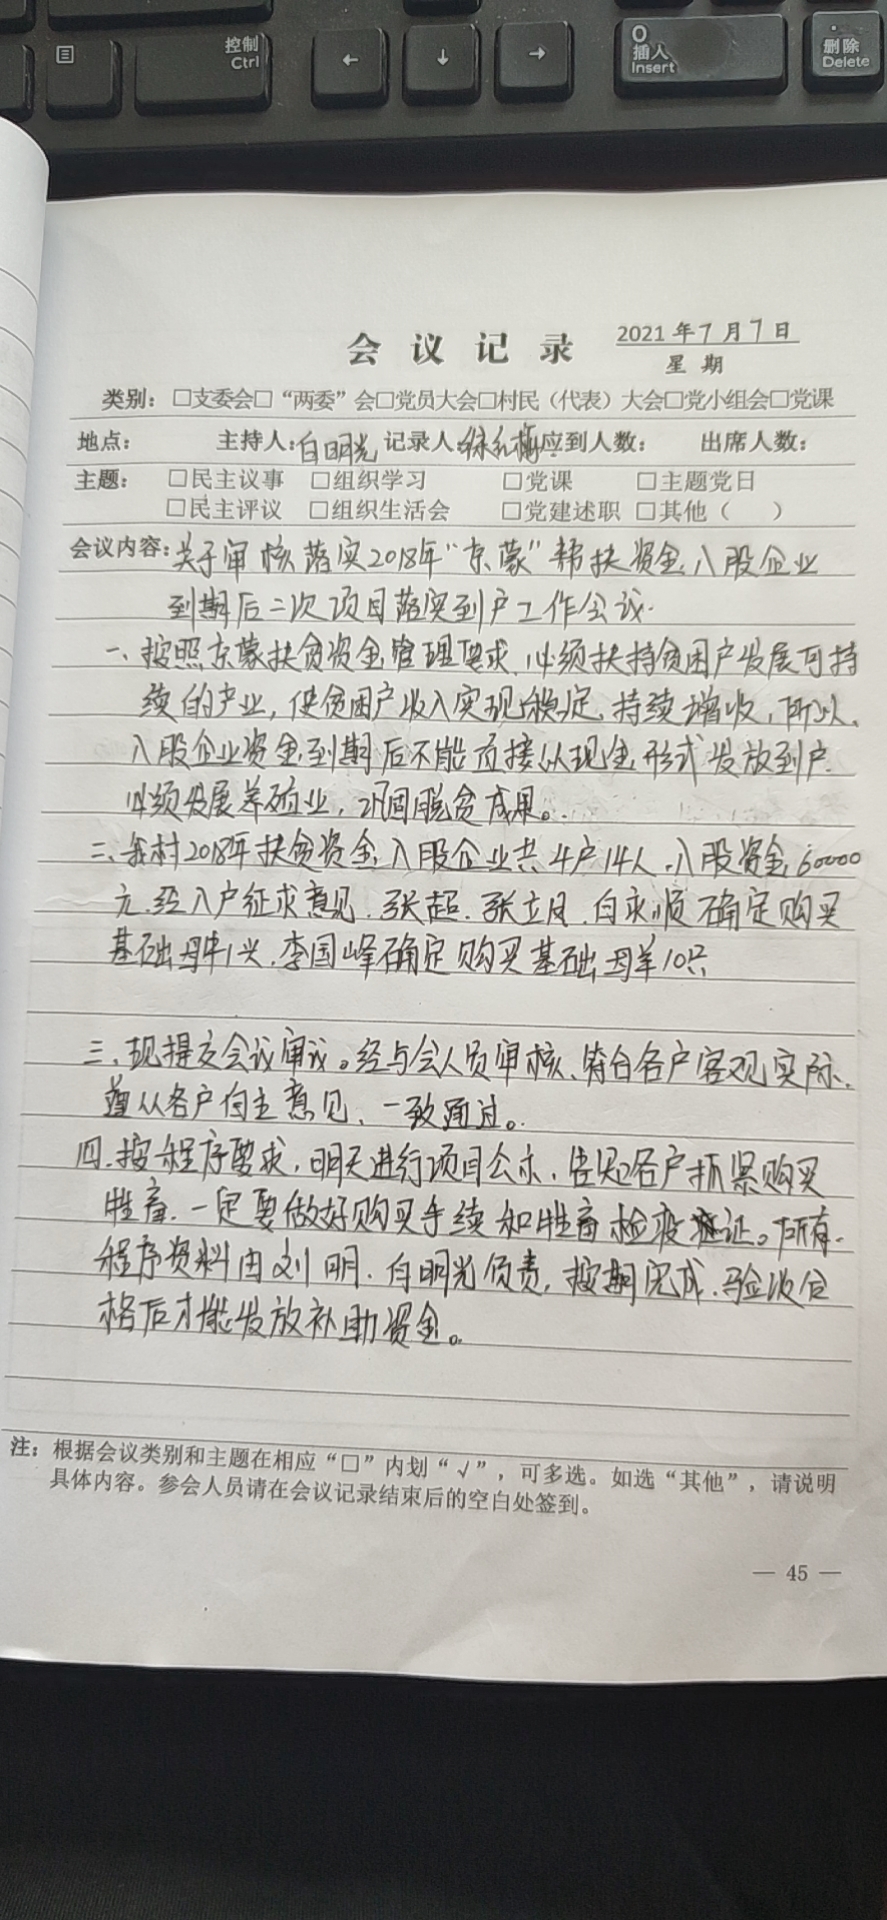 控制
Ctrl
←
↓
→
0
插入
Insert
.
删除
Delete
会议记录
2021年7月7日
星期
类别：□支委会□“两委”会□党员大会□村民（代表）大会□党小组会□党课
地点： 主持人：白明光 记录人：徐 梅 应到人数： 出席人数：
主题： □民主议事 □组织学习 □党课 □主题党日
□民主评议 □组织生活会 □党建述职 □其他（ ）
会议内容：关于审核落实2018年“京蒙”帮扶资金入股企业
到期后二次项目落实到户工作会议.
一、按照京蒙扶贫资金管理要求，必须扶持贫困户发展可持
续的产业，使贫困户收入实现稳定、持续增收，所以，
入股企业资金到期后不能直接以现金形式发放到户.
必须发展养殖业，巩固脱贫成果。
二、我村2018年扶贫资金入股企业共4户14人，入股资金60000
元.经入户征求意见.张超.张立月.白永顺确定购买
基础母牛1头.李国峰确定购买基础母羊10只
三、现提交会议审议。经与会人员审核、符合各户客观实际.
遵从各户自主意见、一致通过。
四.按程序要求，明天进行项目公示，告知各户抓紧购买
牲畜.一定要做好购买手续和牲畜检疫 证。所有
程序资料由刘明.白明光负责，按期完成.验收合
格后才能发放补助资金。
注：根据会议类别和主题在相应“□”内划“√”，可多选。如选“其他”，请说明
具体内容。参会人员请在会议记录结束后的空白处签到。
— 45 —